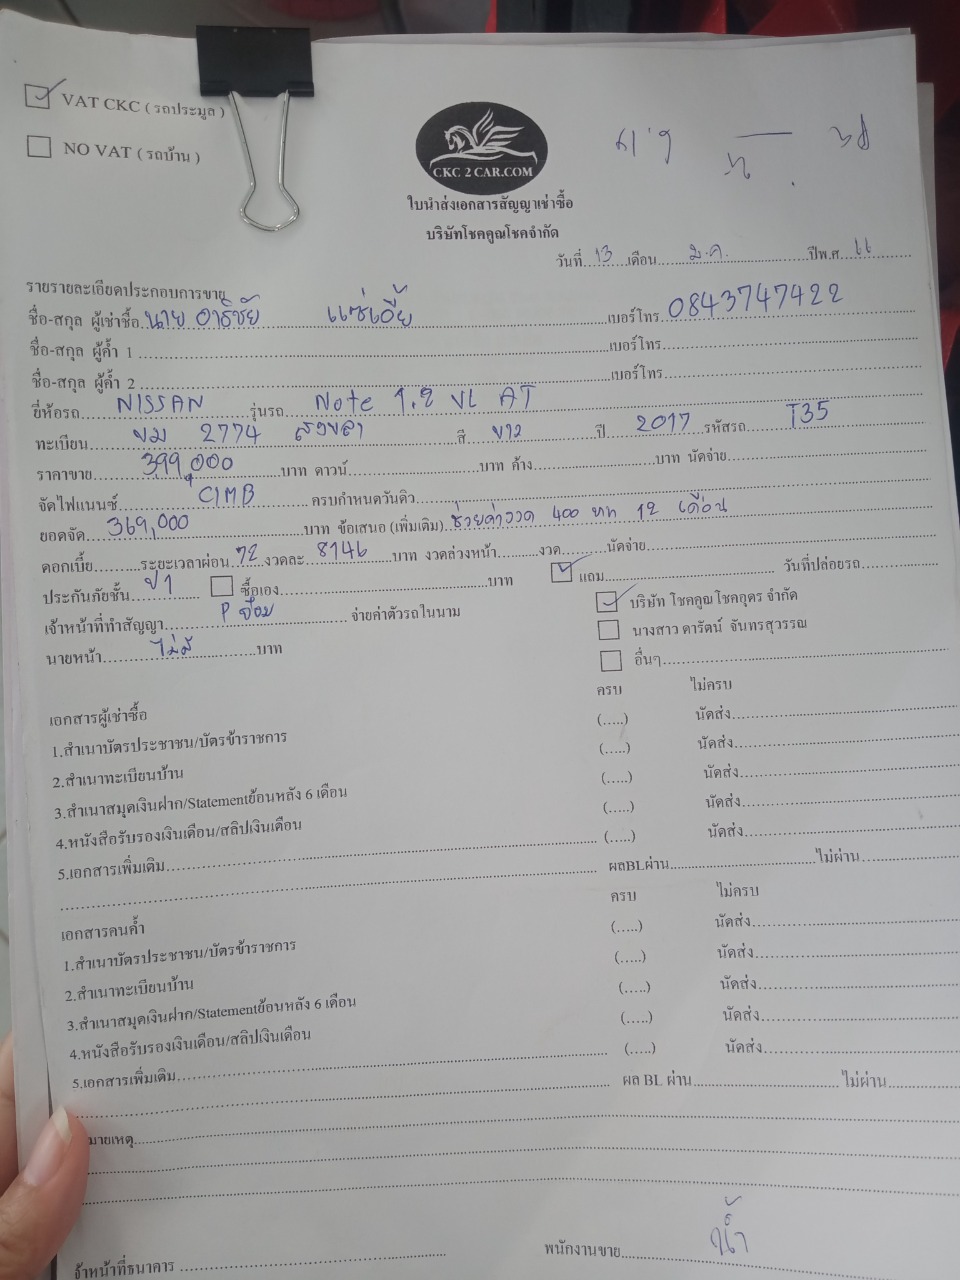 VAT CKC ( รถประมูล )
NO VAT ( รถบ้าน )
CKC 2 CAR.COM
ใบนำส่งเอกสารสัญญาเช่าซื้อ
บริษัทโชคคูณโชคจำกัด
วันที่ 13 เดือน ม.ค. ปีพ.ศ. 66
รายรายละเอียดประกอบการขาย
ชื่อ-สกุล ผู้เช่าซื้อ นาย อาธิชัย แซ่เอี้ย เบอร์โทร 0843747422
ชื่อ-สกุล ผู้ค้ำ 1 เบอร์โทร
ชื่อ-สกุล ผู้ค้ำ 2 เบอร์โทร
ยี่ห้อรถ NISSAN รุ่นรถ Note 1.2 VL AT
ทะเบียน ขม 2774 สงขลา สี ขาว ปี 2017 รหัสรถ T35
ราคาขาย 399,000 บาท ดาวน์ บาท ค้าง บาท นัดจ่าย
จัดไฟแนนซ์ CIMB ครบกำหนดวันคิว
ยอดจัด 369,000 บาท ข้อเสนอ (เพิ่มเติม) ช่วยค่างวด 400 บาท 12 เดือน
ดอกเบี้ย ระยะเวลาผ่อน 72 งวดละ 8146 บาท งวดล่วงหน้า งวด นัดจ่าย
ประกันภัยชั้น ป1 ซื้อเอง บาท แถม วันที่ปล่อยรถ
เจ้าหน้าที่ทำสัญญา P จ๋อม จ่ายค่าตัวรถในนาม บริษัท โชคคูณโชคอุดร จำกัด
นางสาว ดารัตน์ จันทรสุวรรณ
นายหน้า ไม่มี บาท อื่นๆ
ครบ ไม่ครบ
เอกสารผู้เช่าซื้อ
1.สำเนาบัตรประชาชน/บัตรข้าราชการ (.....) นัดส่ง
2.สำเนาทะเบียนบ้าน (.....) นัดส่ง
3.สำเนาสมุดเงินฝาก/Statementย้อนหลัง 6 เดือน (.....) นัดส่ง
4.หนังสือรับรองเงินเดือน/สลิปเงินเดือน (.....) นัดส่ง
5.เอกสารเพิ่มเติม (.....) นัดส่ง
ผลBLผ่าน ไม่ผ่าน
ครบ ไม่ครบ
เอกสารคนค้ำ
1.สำเนาบัตรประชาชน/บัตรข้าราชการ (.....) นัดส่ง
2.สำเนาทะเบียนบ้าน (.....) นัดส่ง
3.สำเนาสมุดเงินฝาก/Statementย้อนหลัง 6 เดือน (.....) นัดส่ง
4.หนังสือรับรองเงินเดือน/สลิปเงินเดือน (.....) นัดส่ง
5.เอกสารเพิ่มเติม (.....) นัดส่ง
ผล BL ผ่าน ไม่ผ่าน
มายเหตุ
พนักงานขาย น้ำ
จ้าหน้าที่ธนาคาร